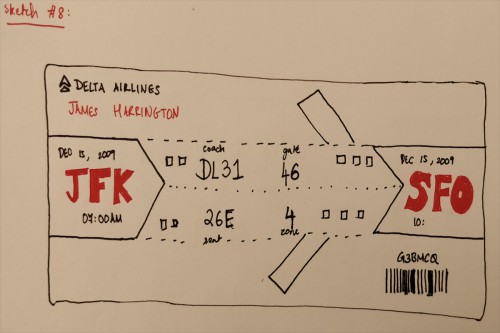 Sketch #8:
DELTA AIRLINES
JAMES HARRINGTON
DEC 15, 2009
JFK
07:00AM
coach
DL31
gate
46
26E
seat
4
zone
DEC 15, 2009
SFO
10:
G3BMCQ